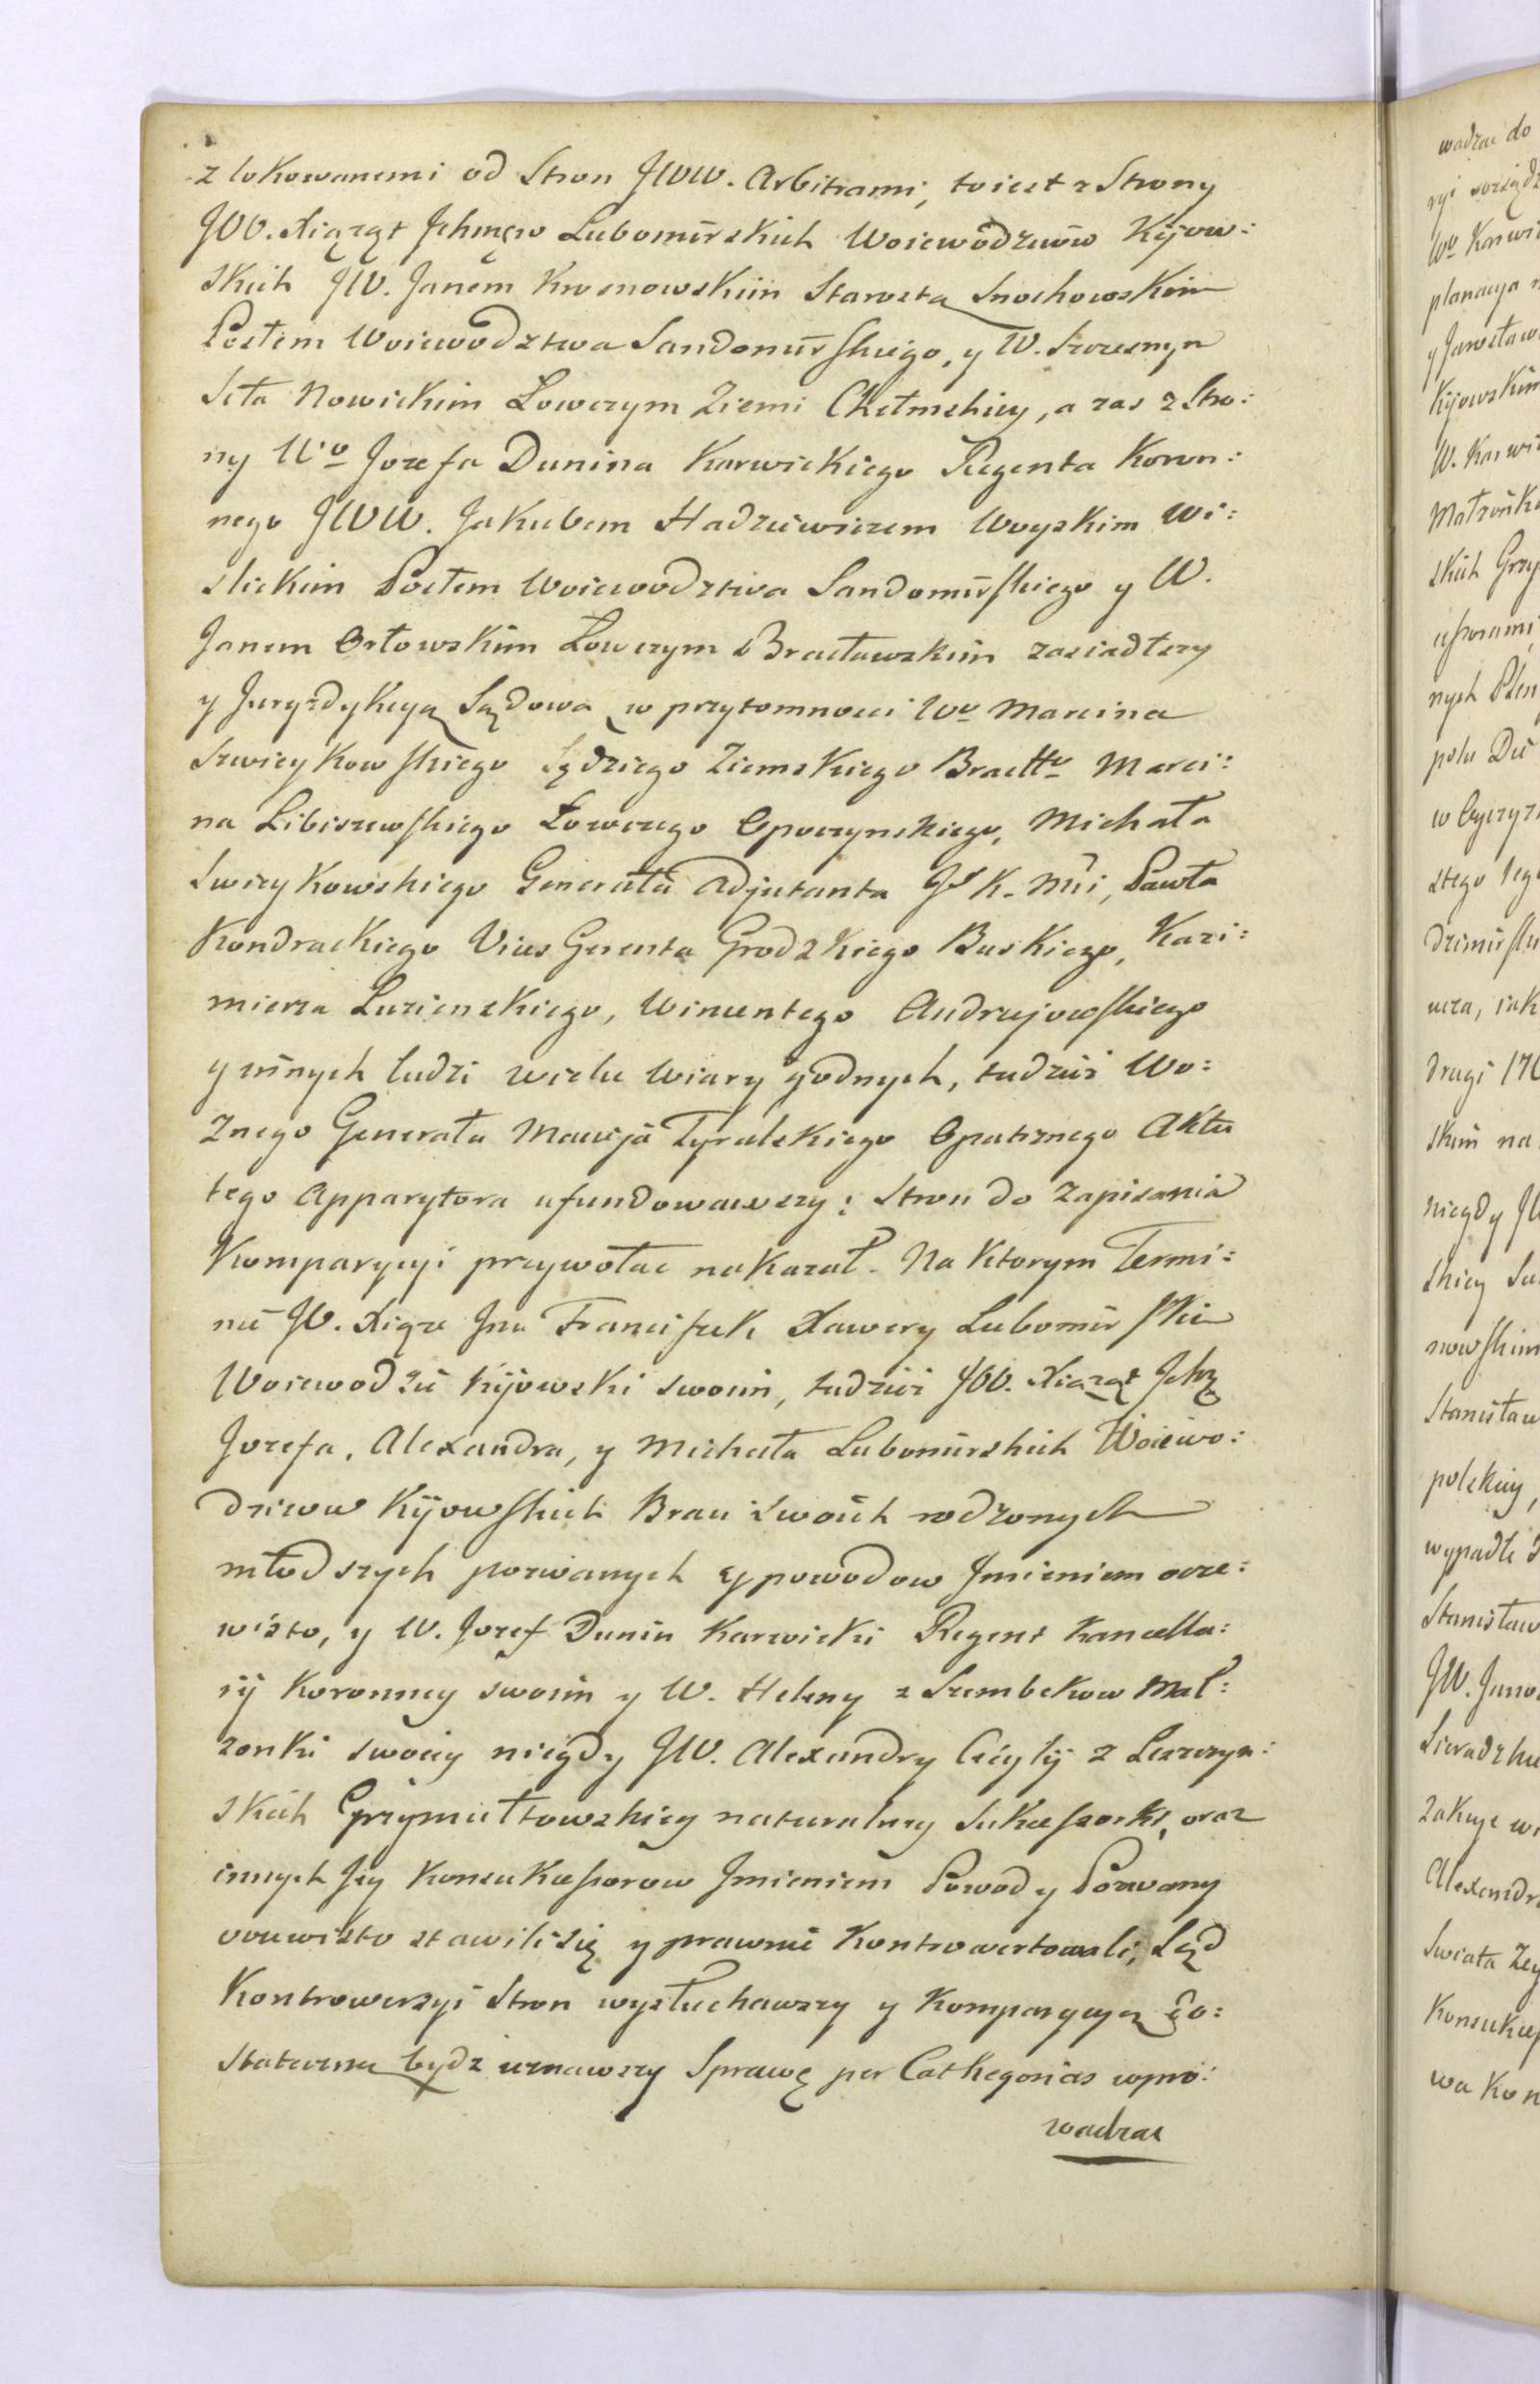 z lokowanemi od Stron JWW. Arbitrami, toiest z Strony
JOO. Xiążąt Jchmęw Lubomirskich Woiewodzicow Kijow:
skich JW. Janem Krosnowskim Starosta Snochowskim
Posłem Woiewodztwa Sandomirskiego, y W. Szczesnym
Seta Nowickim Łowczym Ziemi Chełmskiey, a zas z Stro:
ny Wo Jozefa Dunina Karwickiego Regenta Koron:
nego JWW. Jakubem Hadziewiczem Woyskim Wi:
slickim Posłem Woiewodztwa Sandomirskiego y W.
Janem Orłowskim Łowczym Bracławskim zasiadłszy
y Juryzdykcyą Sądowa w przytomnosci Wo Marcina
Swieykowskiego Sędziego Ziemskiego Bracłło Marci:
na Libiszewskiego Łowczego Opoczynskiego, Michała
Swieykowskiego Generała Adjutanta JK. Mci, Pawła
Kondrackiego Vices Gerenta Grodzkiego Buskiego, Kazi:
mierza Luzienskiego, Wincentego Andrzejowskiego
y innych ludzi wielu wiary godnych, tudziez Wo:
znego Generała Macieja Tyralskiego Opatrznego Aktu
tego Apparytora ufundowawszy; Stron do zapisania
Komparycyi przywołac nakazał. Na ktorym Termi:
nie JO. Xiąże Jmc Franciszek Xawery Lubomirski
Woiewodzic Kijowski swoim, tudziez JOO. Xiążąt Jchmę
Jozefa, Alexandra, y Michała Lubomirskich Woiewo:
dzicow Kijowskich Braci swoich rodzonych
młodszych pozwanych y powodow Jmieniem ocze:
wisto, y W. Jozef Dunin Karwicki Regent Kancella:
ryi Koronney swoim y W. Heleny z Szembekow Mał:
zonki swoiey niegdy JW. Alexandry Cecylii z Leszczyn:
skich Grzymułtowskiey naturalney Sukcessorki, oraz
innych Jey Konsukcessorow Jmieniem Powody Pozwany
oczewisto stawili się y prawnie kontrowertowali, Sąd
Kontrowersyi Stron wysłuchawszy y Komparycyą do:
stateczną bydz uznawszy Sprawę per Cathegorias wpro:
wadzac
wadzac do
Wo Karwi
planacya
y Jarosław
Kijowskim
W. Karwi
Małżonka
skich Grzy
nych Plen
polu Die
w Oyczyz
stego
drugi 176
skim na
niegdy JW
skiey
nowskim
Stanisław
polskiey,
wypadłe
Stanisław
JW.
Sieradzkie
zakuje
Alexandra
Swiata Zey
Konsukces
wa Kon